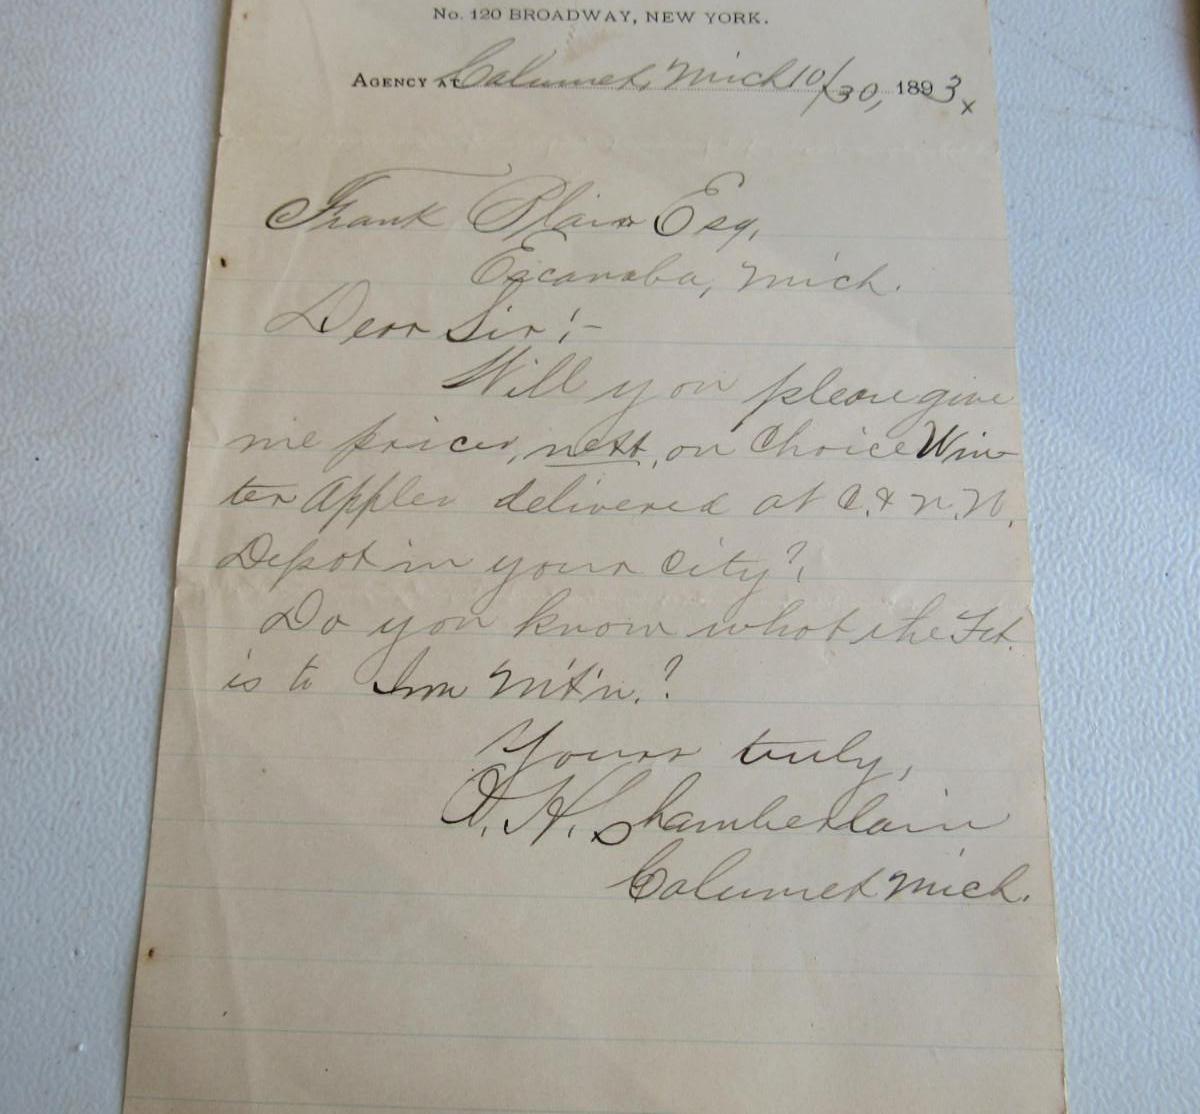 No. 120 BROADWAY, NEW YORK.
AGENCY AT Calumet, Mich 10/30, 1893 x
Frank Blair Esq,
Escanaba, Mich.
Dear Sir!-
Will you please give
me prices, nett, on Choice Win-
ter Apples delivered at C. & N. W.
Depot in your City?
Do you know what the Frt.
is to Iron Mt'n.?
Yours truly,
H. Chamberlain
Calumet Mich.